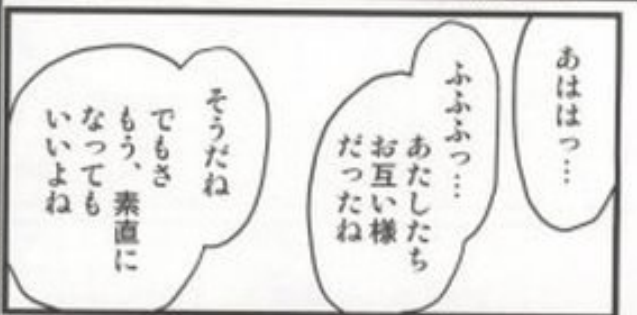 あははっ…
ふふふっ…
あたしたち
お互い様
だったね
そうだね
でもさ
もう、素直に
なっても
いいよね